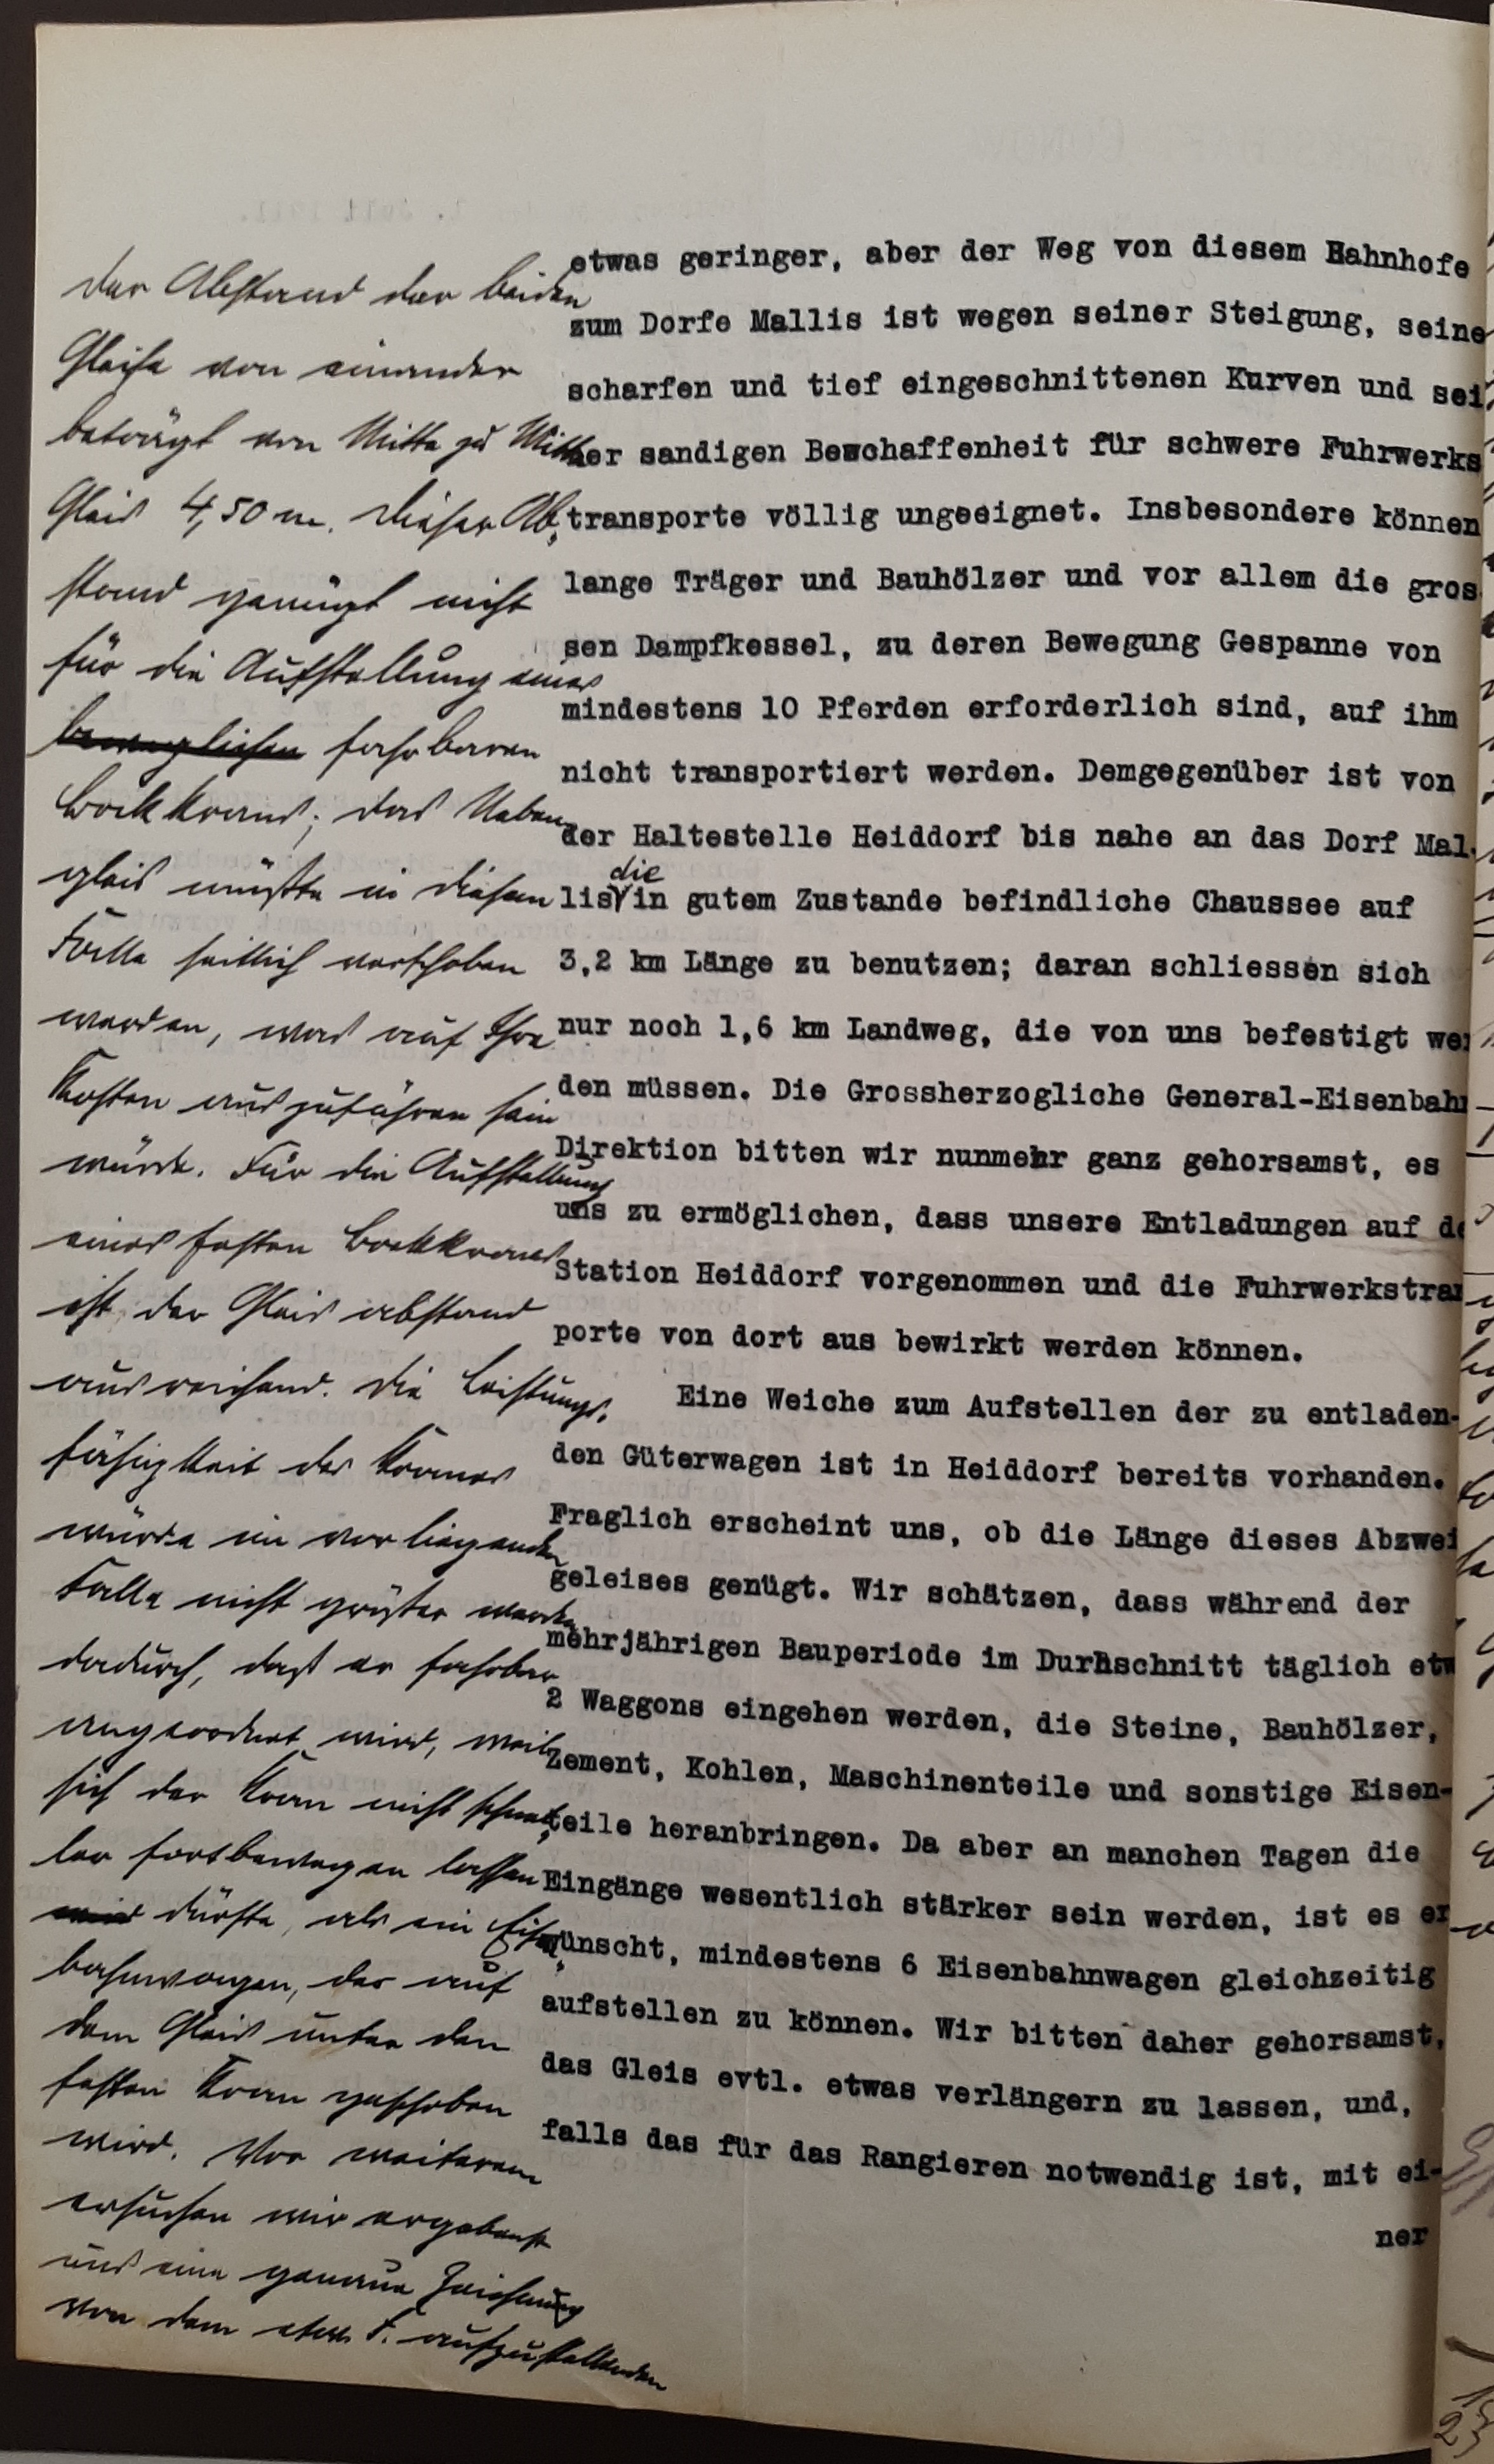 der Abstand der beiden
Gleise von einander
beträgt von Mitte zu Mitte
Gleis 4,50 m. Dieser Ab-
stand genügt nicht
für die Aufstellung eines
beweglichen fahrbaren
Bockkrans; das Neben-
gleis müßte in diesem
Falle seitlich verschoben
werden, was auf Ihre
Kosten auszuführen sein
würde. Für die Aufstellung
eines festen Bockkranes
ist der Gleisabstand
ausreichend. Die Leistungs-
fähigkeit des Kranes
würde im vorliegenden
Falle nicht größer werden
dadurch, daß er fahrbar
angeordnet wird, weil
sich der Kran nicht schnel-
ler fortbewegen lassen
wird dürfte, als ein Eisen-
bahnwagen, der auf
dem Gleis unter den
festen Kran geschoben
wird. Vor weiterem
ersuchen wir ergebenst
uns eine genaue Zeichnung
von dem aufzustellenden
etwas geringer, aber der Weg von diesem Bahnhofe
zum Dorfe Mallis ist wegen seiner Steigung, seine
scharfen und tief eingeschnittenen Kurven und sei
ner sandigen Beschaffenheit für schwere Fuhrwerks
transporte völlig ungeeignet. Insbesondere können
lange Träger und Bauhölzer und vor allem die gros-
sen Dampfkessel, zu deren Bewegung Gespanne von
mindestens 10 Pferden erforderlich sind, auf ihm
nicht transportiert werden. Demgegenüber ist von
der Haltestelle Heiddorf bis nahe an das Dorf Mal-
lis die in gutem Zustande befindliche Chaussee auf
3,2 km Länge zu benutzen; daran schliessen sich
nur noch 1,6 km Landweg, die von uns befestigt wer
den müssen. Die Grossherzogliche General-Eisenbahn
Direktion bitten wir nunmehr ganz gehorsamst, es
uns zu ermöglichen, dass unsere Entladungen auf de
Station Heiddorf vorgenommen und die Fuhrwerkstran
porte von dort aus bewirkt werden können.
Eine Weiche zum Aufstellen der zu entladen-
den Güterwagen ist in Heiddorf bereits vorhanden.
Fraglich erscheint uns, ob die Länge dieses Abzwei
geleises genügt. Wir schätzen, dass während der
mehrjährigen Bauperiode im Durhschnitt täglich etw
2 Waggons eingehen werden, die Steine, Bauhölzer,
Zement, Kohlen, Maschinenteile und sonstige Eisen-
teile heranbringen. Da aber an manchen Tagen die
Eingänge wesentlich stärker sein werden, ist es er
wünscht, mindestens 6 Eisenbahnwagen gleichzeitig
aufstellen zu können. Wir bitten daher gehorsamst,
das Gleis evtl. etwas verlängern zu lassen, und,
falls das für das Rangieren notwendig ist, mit ei-
ner